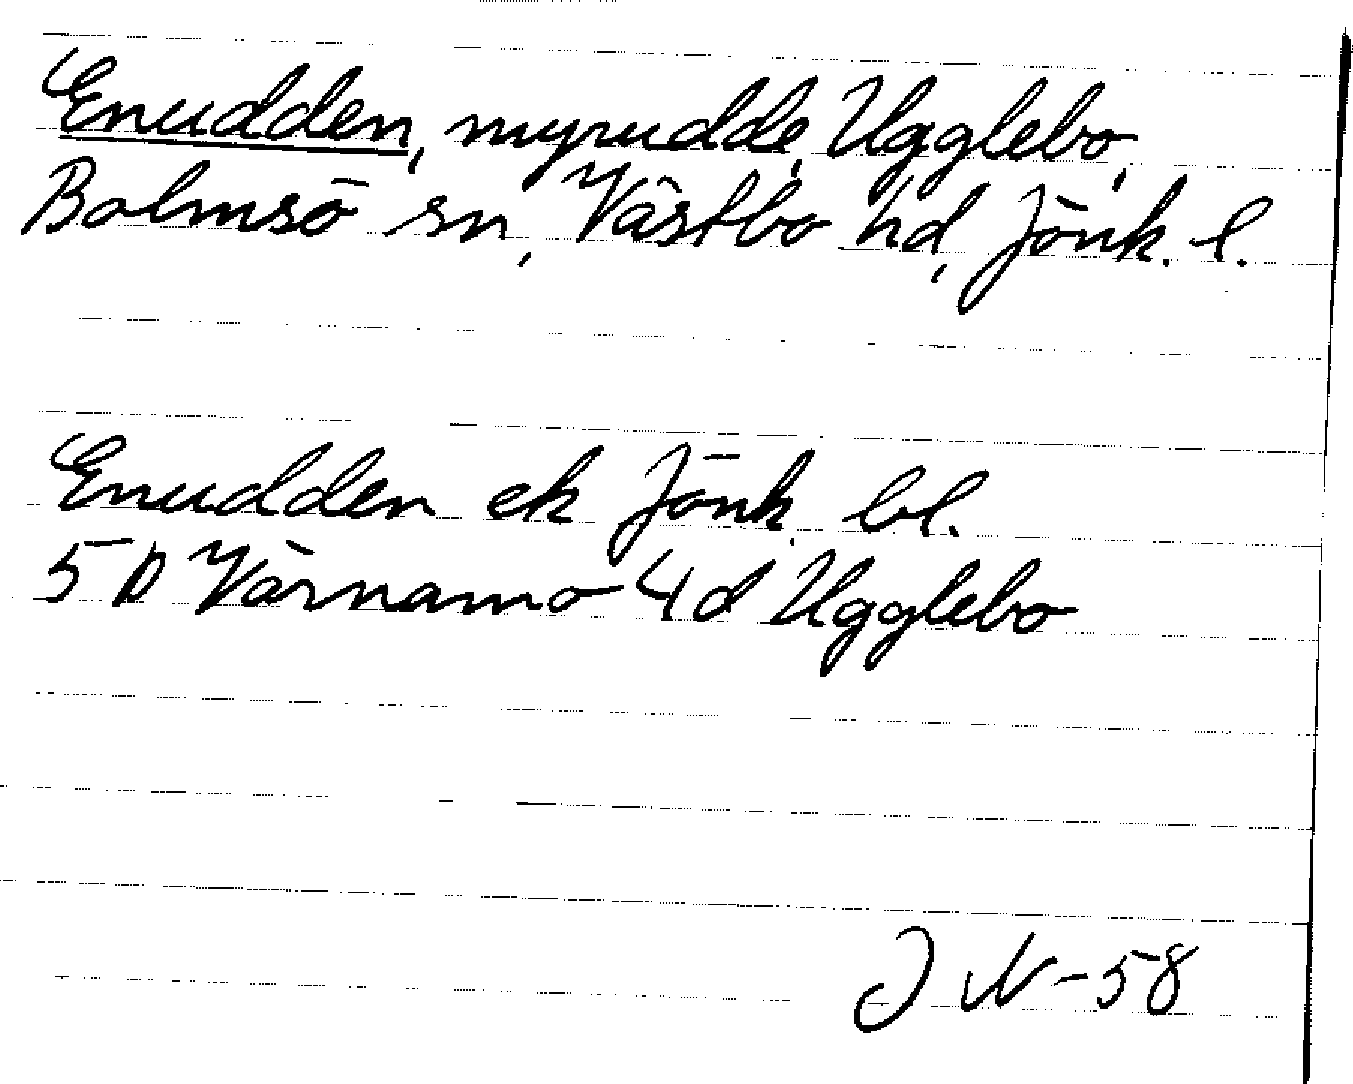 Enudden, myrudde, Ugglebo,
Bolmsö sn, Västbo hd, Jönk. l.
Enudden ek Jönk. bl.
5D Värnamo 4d Ugglebo
J N-58